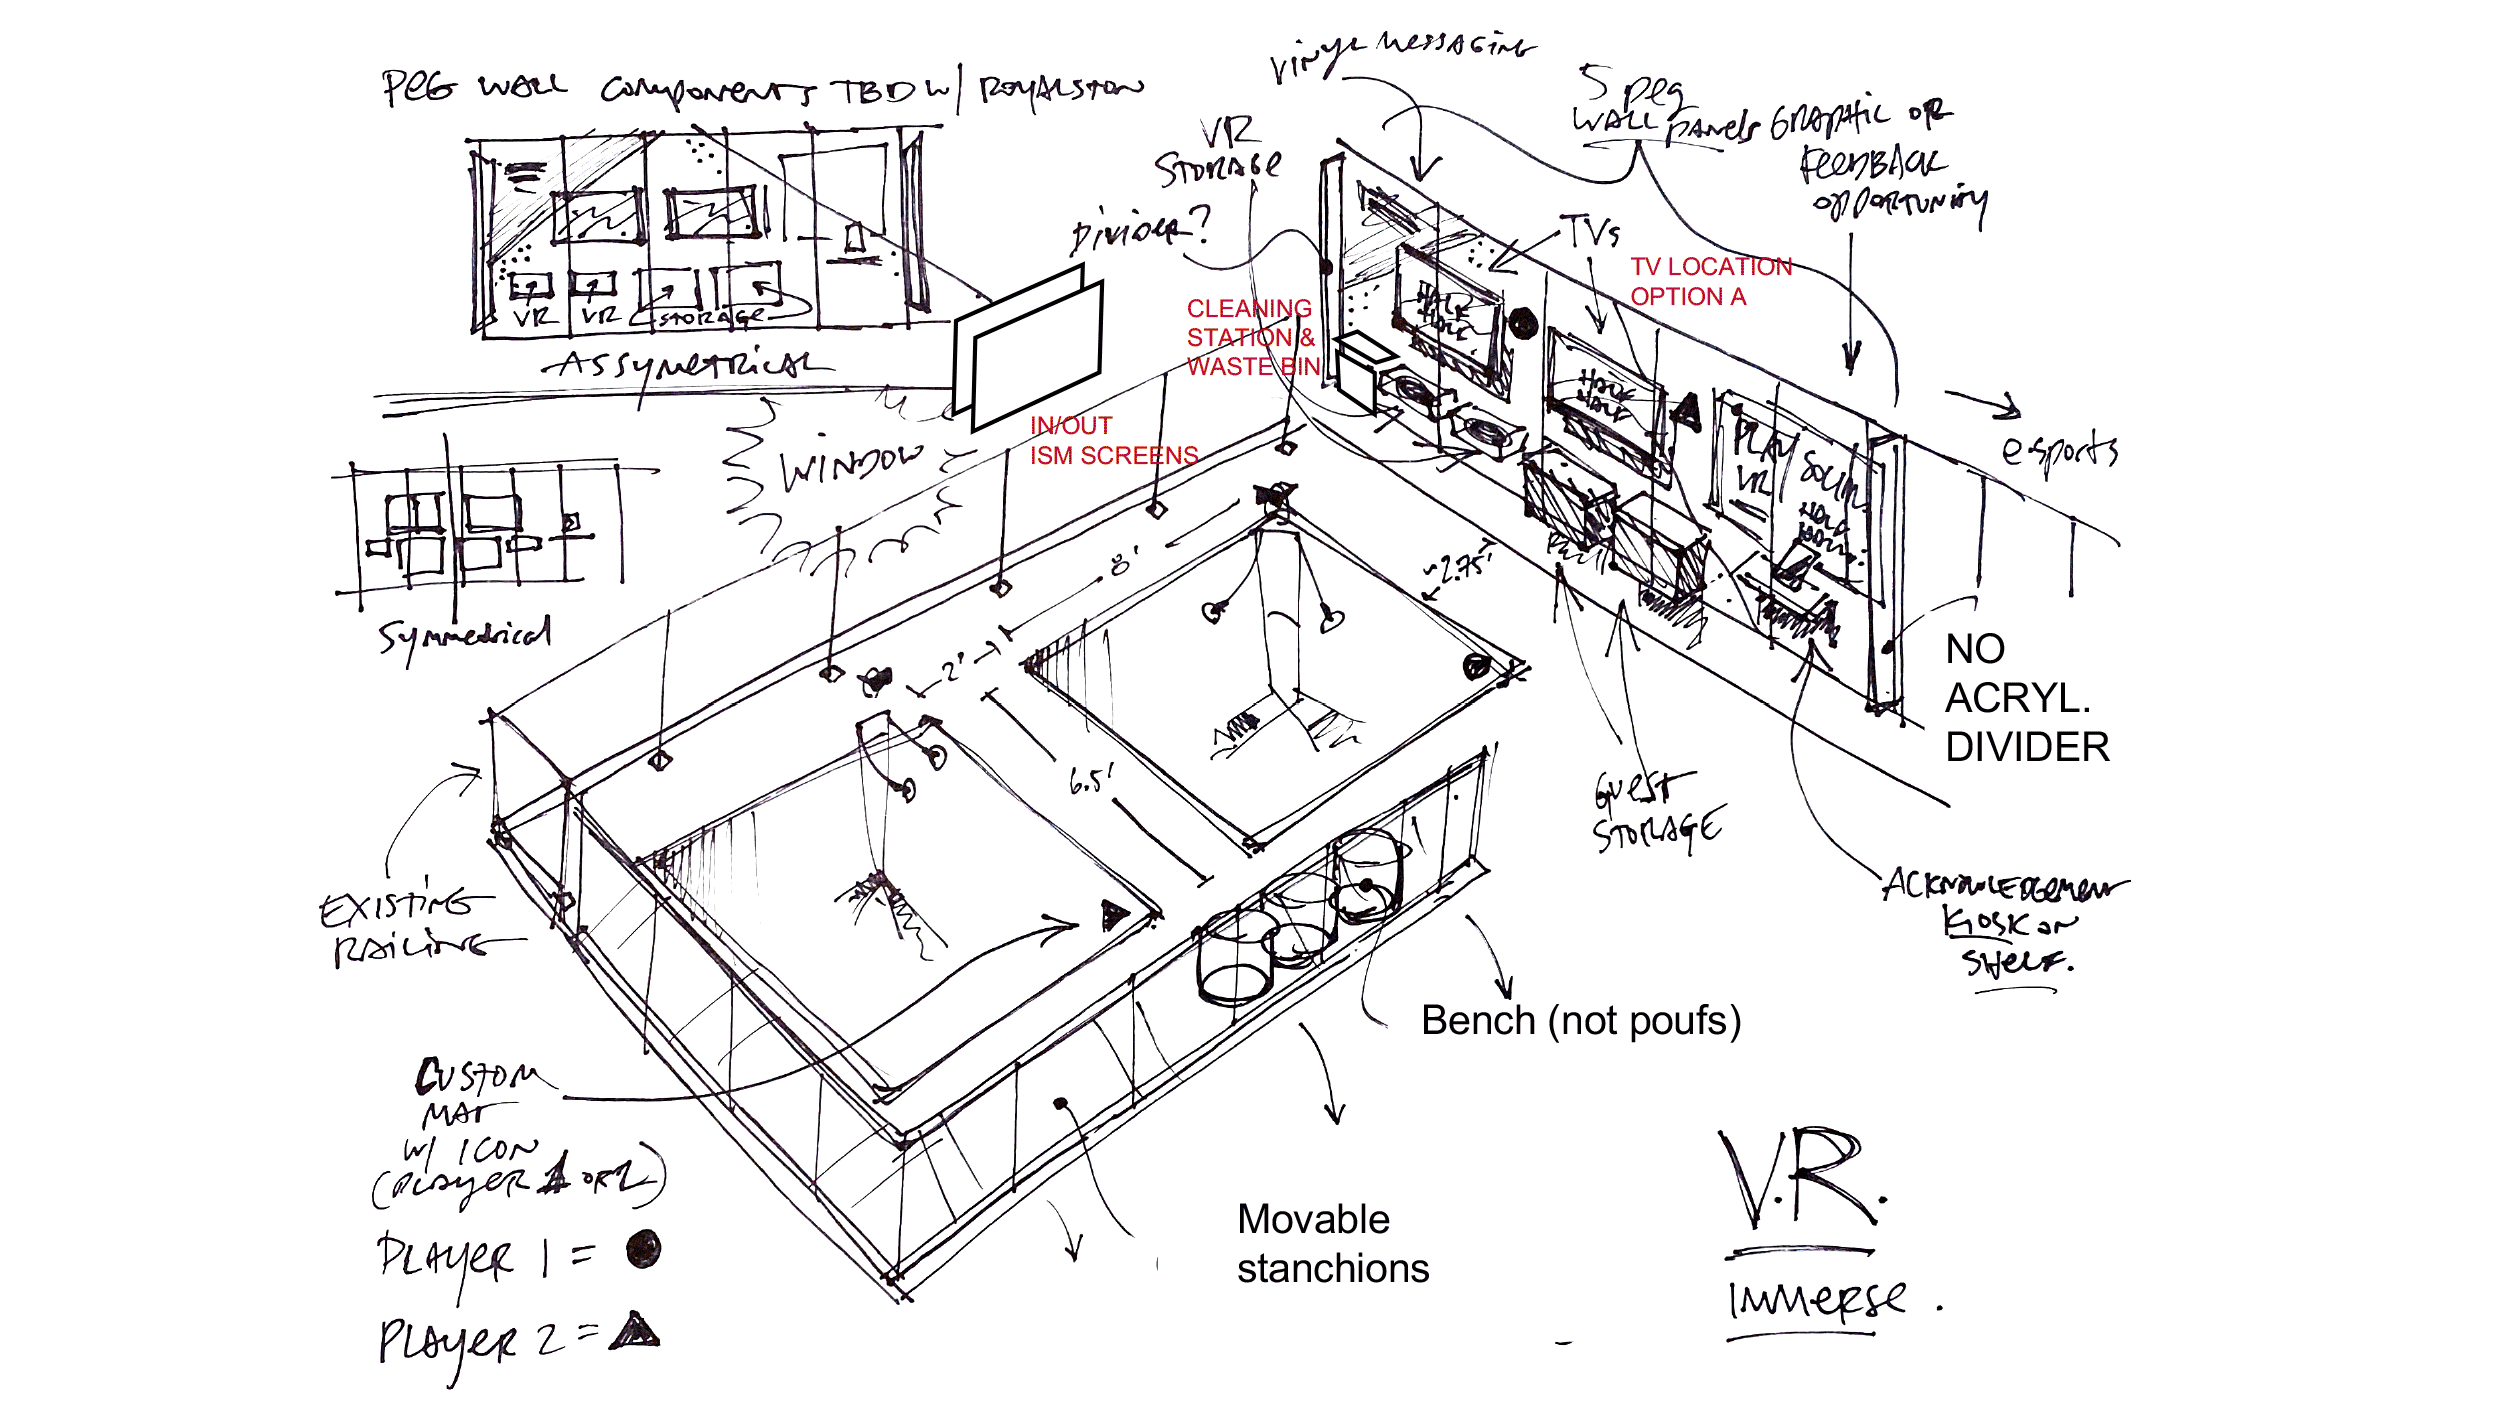 PEG WALL COMPONENTS TBD W/ ROYALSTON
VR VR STORAGE
ASSYMETRICAL
Symmetrical
WINDOW
VINYL MESSAGING
VR
STORAGE
DIVIDER?
5 peg
WALL PANELS
GRAPHIC OR
FEEDBACK
OPPORTUNITY
TVs
TV LOCATION
OPTION A
CLEANING
STATION &
WASTE BIN
IN/OUT
ISM SCREENS
e-sports
PLAY
VR
8'
2'
6.5'
~2.75'
NO
ACRYL.
DIVIDER
GUEST
STORAGE
ACKNOWLEDGEMENT
KIOSK ON
SHELF.
EXISTING
RAILING
Bench (not poufs)
CUSTOM
MAT
W/ ICON
(PLAYER 1 OR 2)
PLAYER 1 =
PLAYER 2 =
Movable
stanchions
V.R.
IMMERSE.